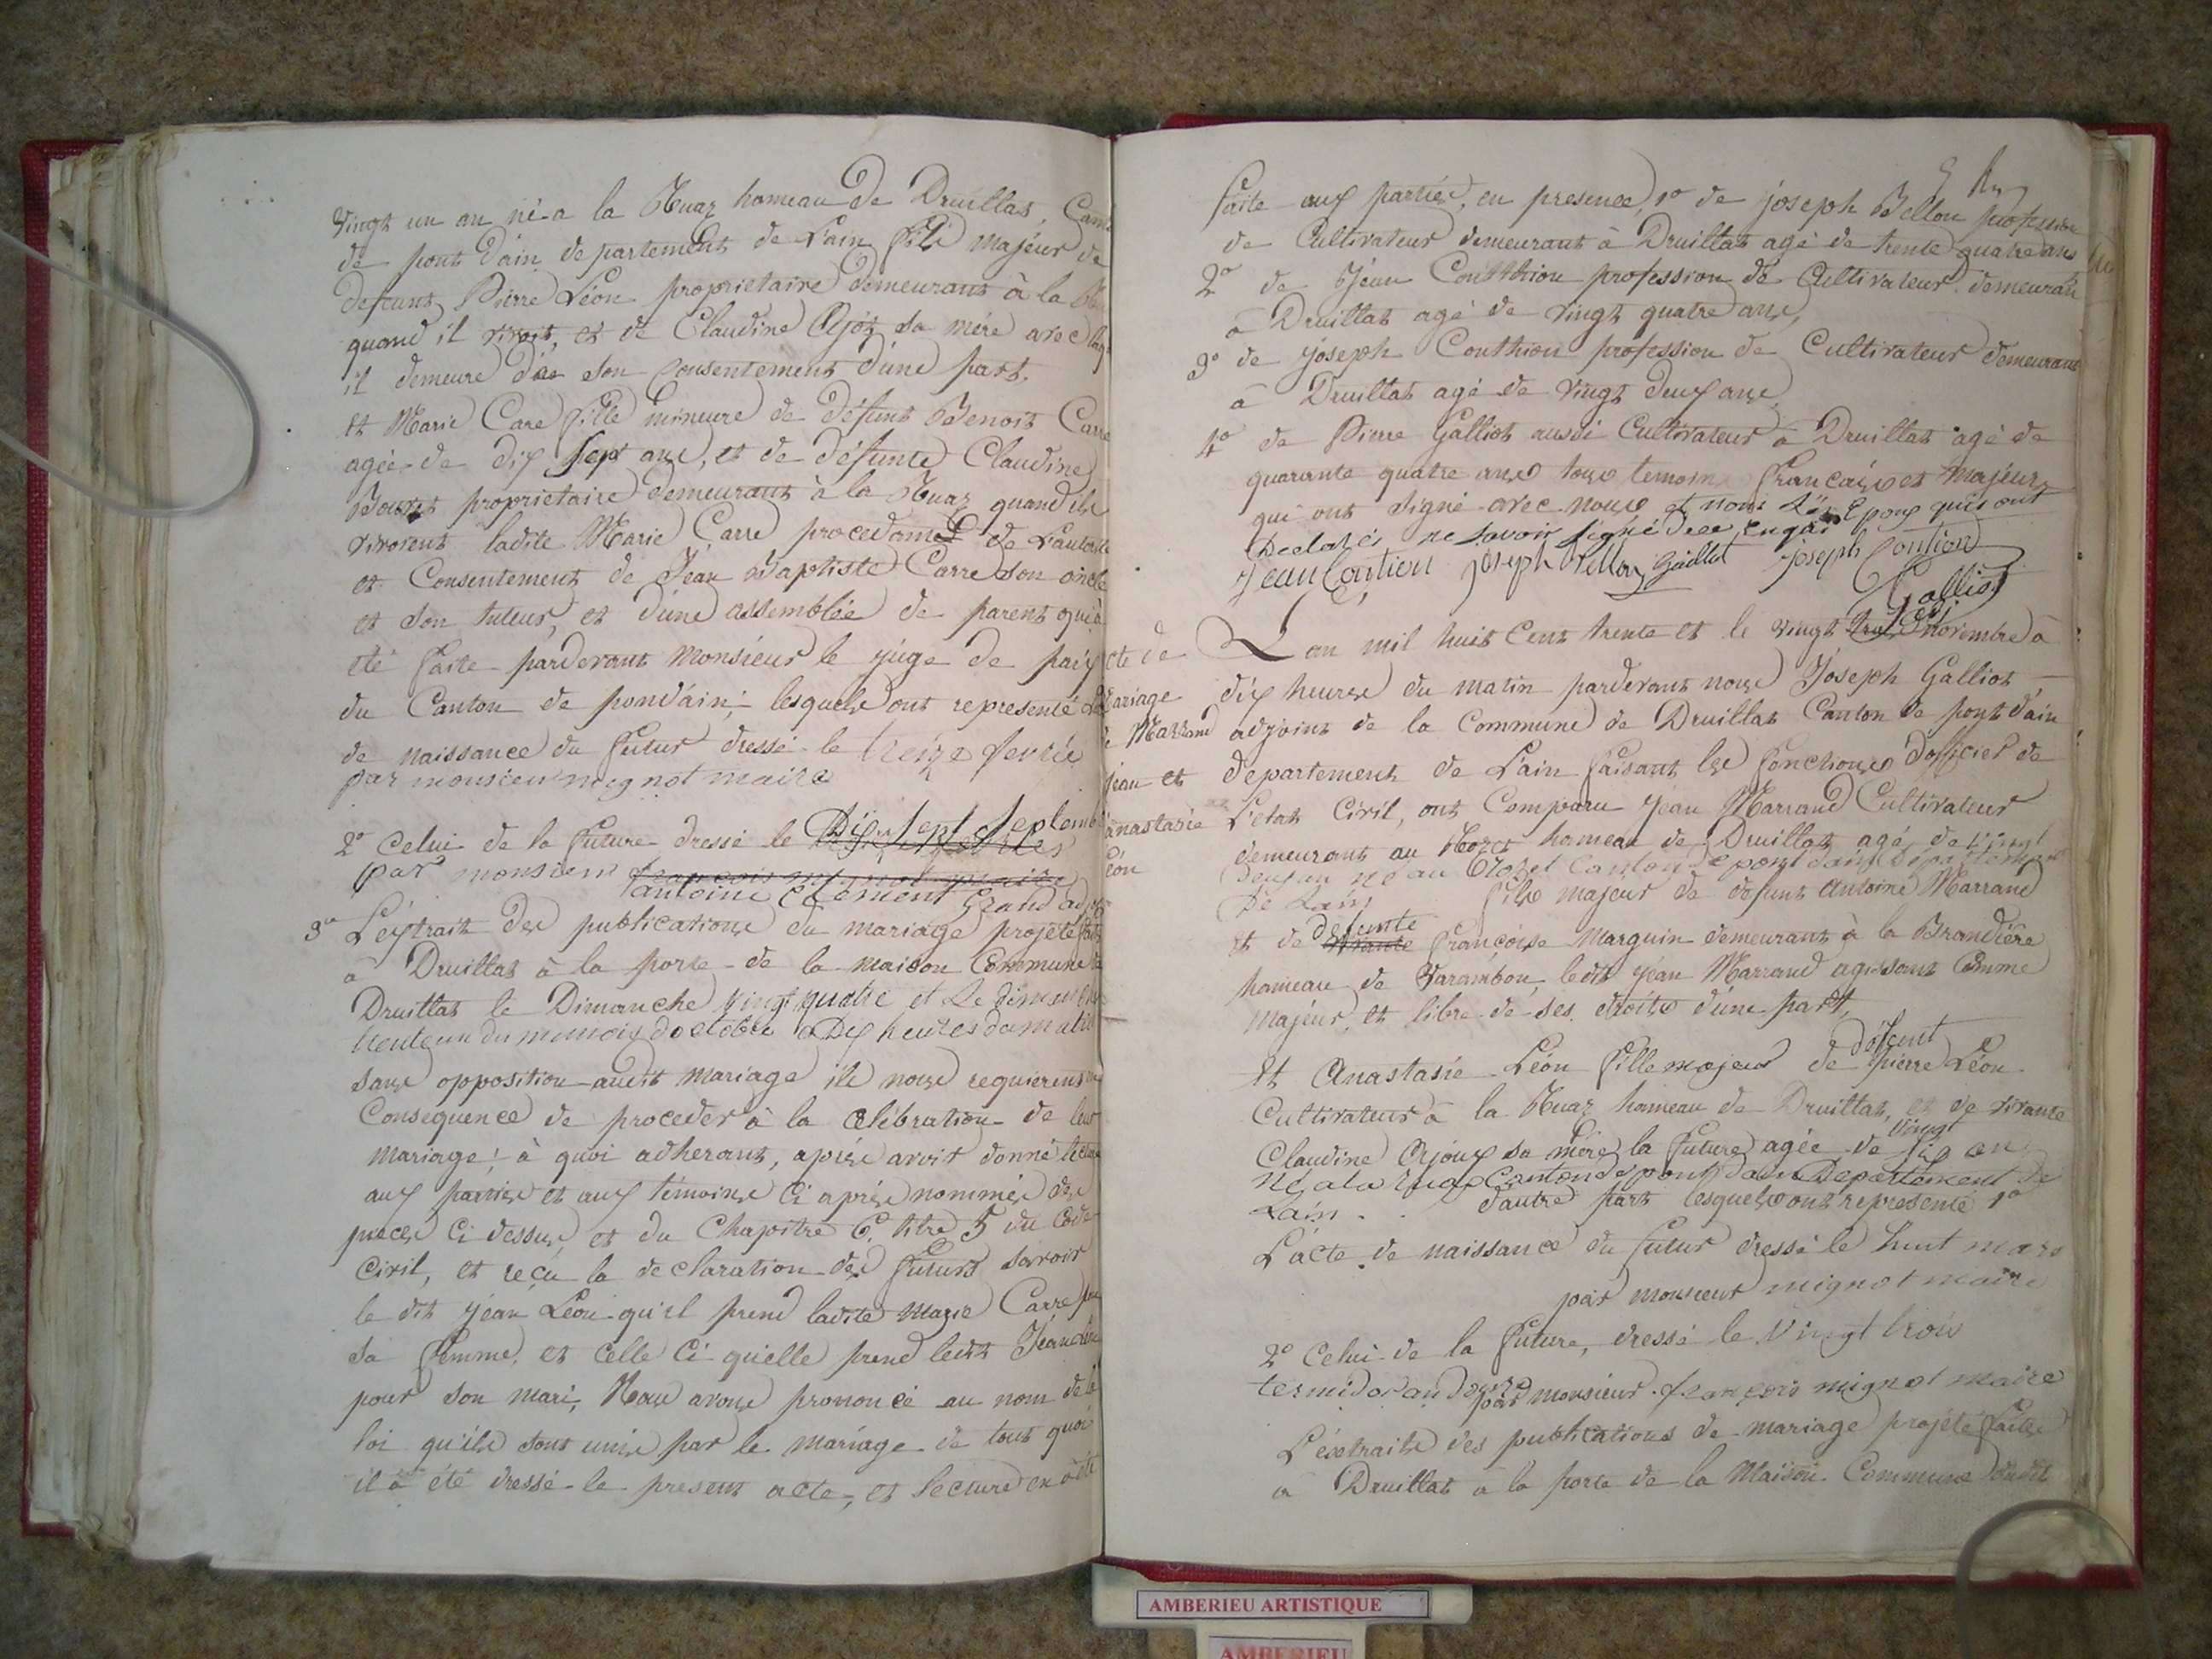 vingt un an né a la Ruaz hameau de Druillat, Can
de pont d'ain departement de L'ain fils majeur de
defunt Pierre Léon proprietaire demeurant à la
quand il vivoit, et de Claudine Ajoz sa mére avec
il demeure de son Consentement d'une part.
et Marie Care fille mineure de défunt Benoit Carre
agée de dix sept ans, et de défunte Claudine
proprietaire demeurant à la Ruaz quand ils
vivoient ladite Marie Carre procedant de L'autorité
et Consentement de Jéan Baptiste Carre son oncle
et son tuteur, et d'une assemblée de parent qui a
eté faite pardevant Monsieur le juge de paix
du Canton de pondáin; lesquels ont representé
de naissance du futur dressé le treize fevrié
par monsieur mignot maire
2º celui de la future dressé le Dix Sept Septemb
par monsieur francois mignot maire
antoine Clement Grand adj
3º L'extrait des publications du mariage projeté fait
à Druillat à la porte de la maison Commune
Druillat le Dimanche vingt quatre et Le dimanche
trente un du mémois d'octobre a Dix heures du matin
sans opposition audit mariage ils nous requierent
Consequence de proceder à la célébration de leur
mariage; à quoi adherant, aprés avoir donné lecture
aux parties et aux témoins ci aprés nommés des
piéces ci dessus, et du Chapitre 6. titre 5 du Code
Civil, et reçu la declaration des futurs savoir
le dit Jéan Léon qu'il prend ladite Marie Carre pour
sa femme, et celle ci qu'elle prend ledit Jéan Léon
pour son mari, Nous avons prononcé au nom de la
loi qu'ils sont unis par le mariage de tout quoi
il à été dressé le present acte, et lecture en à été
faite aux parties, en presence, 1º de joseph Bellon profession
de Cultivateur demeurant à Druillat agé de trente quatre ans
2º de Jéan Conthion profession de Cultivateur demeurant
à Druillat agé de vingt quatre ans,
3º de joseph Conthion profession de Cultivateur demeurant
à Druillat agé de vingt deux ans,
4º de Pierre Galliot aussi Cultivateur à Druillat agé de
quarante quatre ans tous temoins français et majeurs
qui ont signé avec nous et nom Les Epoux quis ont
Declarés ne savoir signé de ce enquis
Jean Contion joseph Bellon Galliot joseph Contion
Galliot adj
cte de
Mariage
de Marrand
jéan et
anastasie
Léon
L'an mil huit Cent trente et le vingt novembre à
dix heures du matin pardevant nous Joseph Galliot
adjoint de la Commune de Druillat Canton de pont d'ain
departement de L'ain faisant les fonctions d'officier de
L'etat Civil, ont Comparu Jéan Marrand Cultivateur
demeurant au Mozet hameau de Druillat agé de vingt
deux an né au Canton de pont dain Département
De Lain fils majeur de defunt Antoine Marrand
et de vivante defunte Françoise Marguin demeurant à la Brandiére
hameau de Varambon, ledit Jéan Marrand agissant Comme
majeur, et libre de ses droits d'une part,
Et Anastasie Léon fille majeur de défunt pierre Léon
Cultivateur à la Ruaz hameau de Druillat, et de vivante
Claudine Ajoux sa mére, la future agée de vingt six an
Né a la ruaz Canton de pont dain Departement de
Lain. d'autre part lesquels ont representé 1º
L'acte de naissance du futur dressé le huit mars
par monsieur mignot maire
2º Celui de la future, dressé le vingt trois
termidor an douze par monsieur françois mignot maire
L'éxtraits des publications de mariage projété faites
à Druillat a la porte de la Maison Commune dudit
AMBERIEU ARTISTIQUE
AMBERIEU